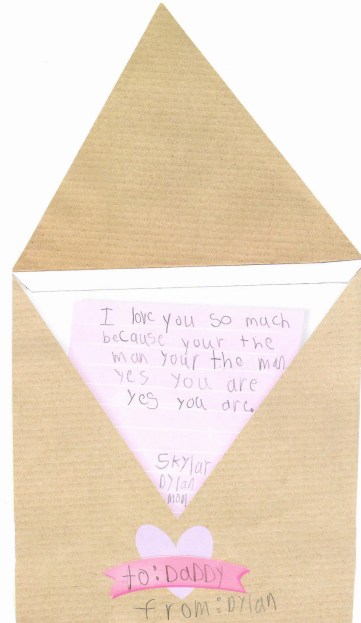 I love you so much
because your the
man your the man
yes you are
yes you are.
Skylar
Dylan
mom
to: DaDDY
from: Dylan